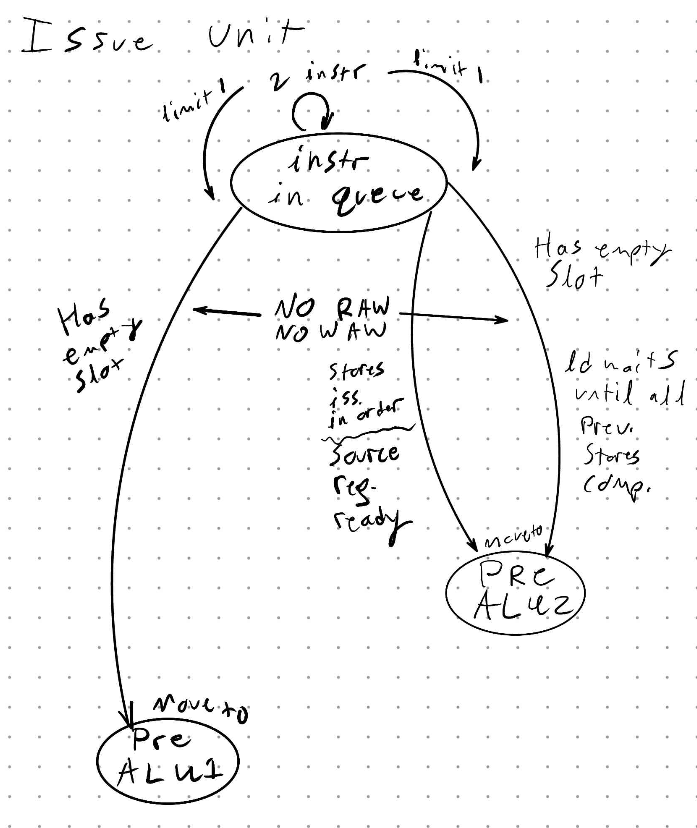 Issue Unit
limit 1
2 instr
limit 1
instr
in queue
Has empty
Slot
Has
empty
slot
NO RAW
NO WAW
Stores
iss.
in order
Source
reg.
ready
ld waits
until all
Prev.
Stores
comp.
move to
PRe
ALU2
Move to
Pre
ALU1